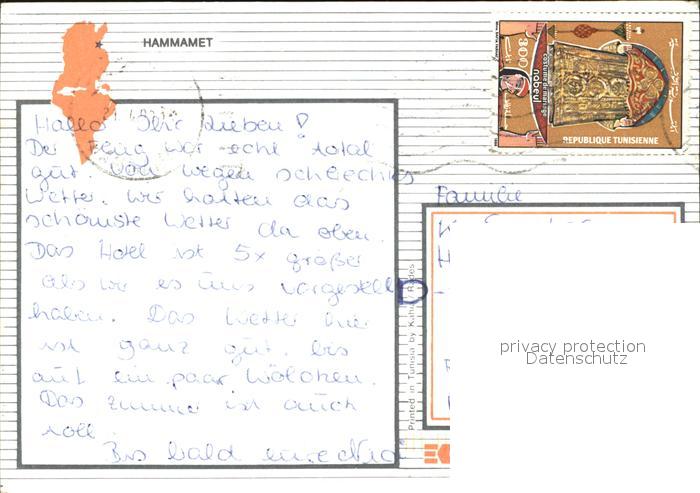 HAMMAMET
300
costume de mariage
nabeul
REPUBLIQUE TUNISIENNE
Hallo Ihr Lieben!
Der Flug war echt total
gut. Von wegen schlechtes
Wetter. Wir hatten das
schönste Wetter da oben.
Das Hotel ist 5x größer
als wir es uns vorgestellt
haben. Das Wetter hier
ist ganz gut, bis
auf ein paar Wölkchen.
Das Zimmer ist auch
toll.
Bis bald eure
Familie
D
Printed in Tunisia by Kahia
privacy protection
Datenschutz